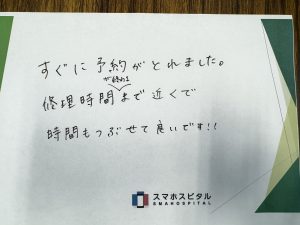 すぐに予約がとれました。
が終わる
修理時間まで近くで
時間もつぶせて良いです!!
スマホスピタル
SMAHOSPITAL